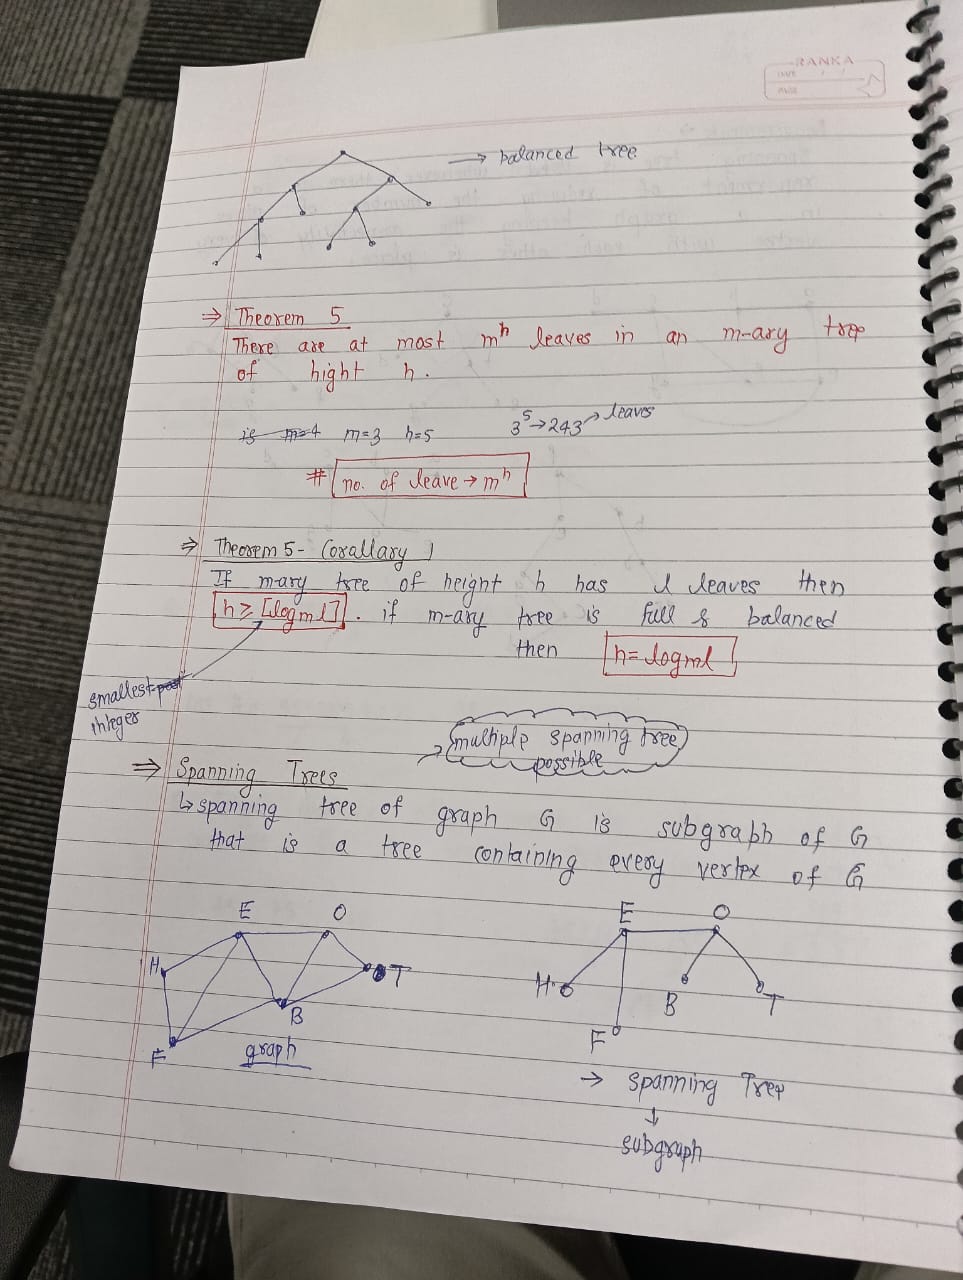 RANKA
DATE / /
PAGE
→ balanced tree
⇒ Theorem 5
There are at most mʰ leaves in an m-ary tree
of hight h.
is m=4 m=3 h=5 3⁵→243→leaves
# no. of leave → mʰ
⇒ Theorem 5- Corallary )
If mary tree of heignt h has l leaves then
h ≥ [logml]. if m-ary tree is full & balanced
then h= logml
smallest
integer
multiple spanning tree
possible
⇒ Spanning Trees
↳ spanning tree of graph G is subgraph of G
that is a tree containing every vertex of G
E O
H T
B
F
graph
E O
H B T
F
→ Spanning Tree
↓
subgraph